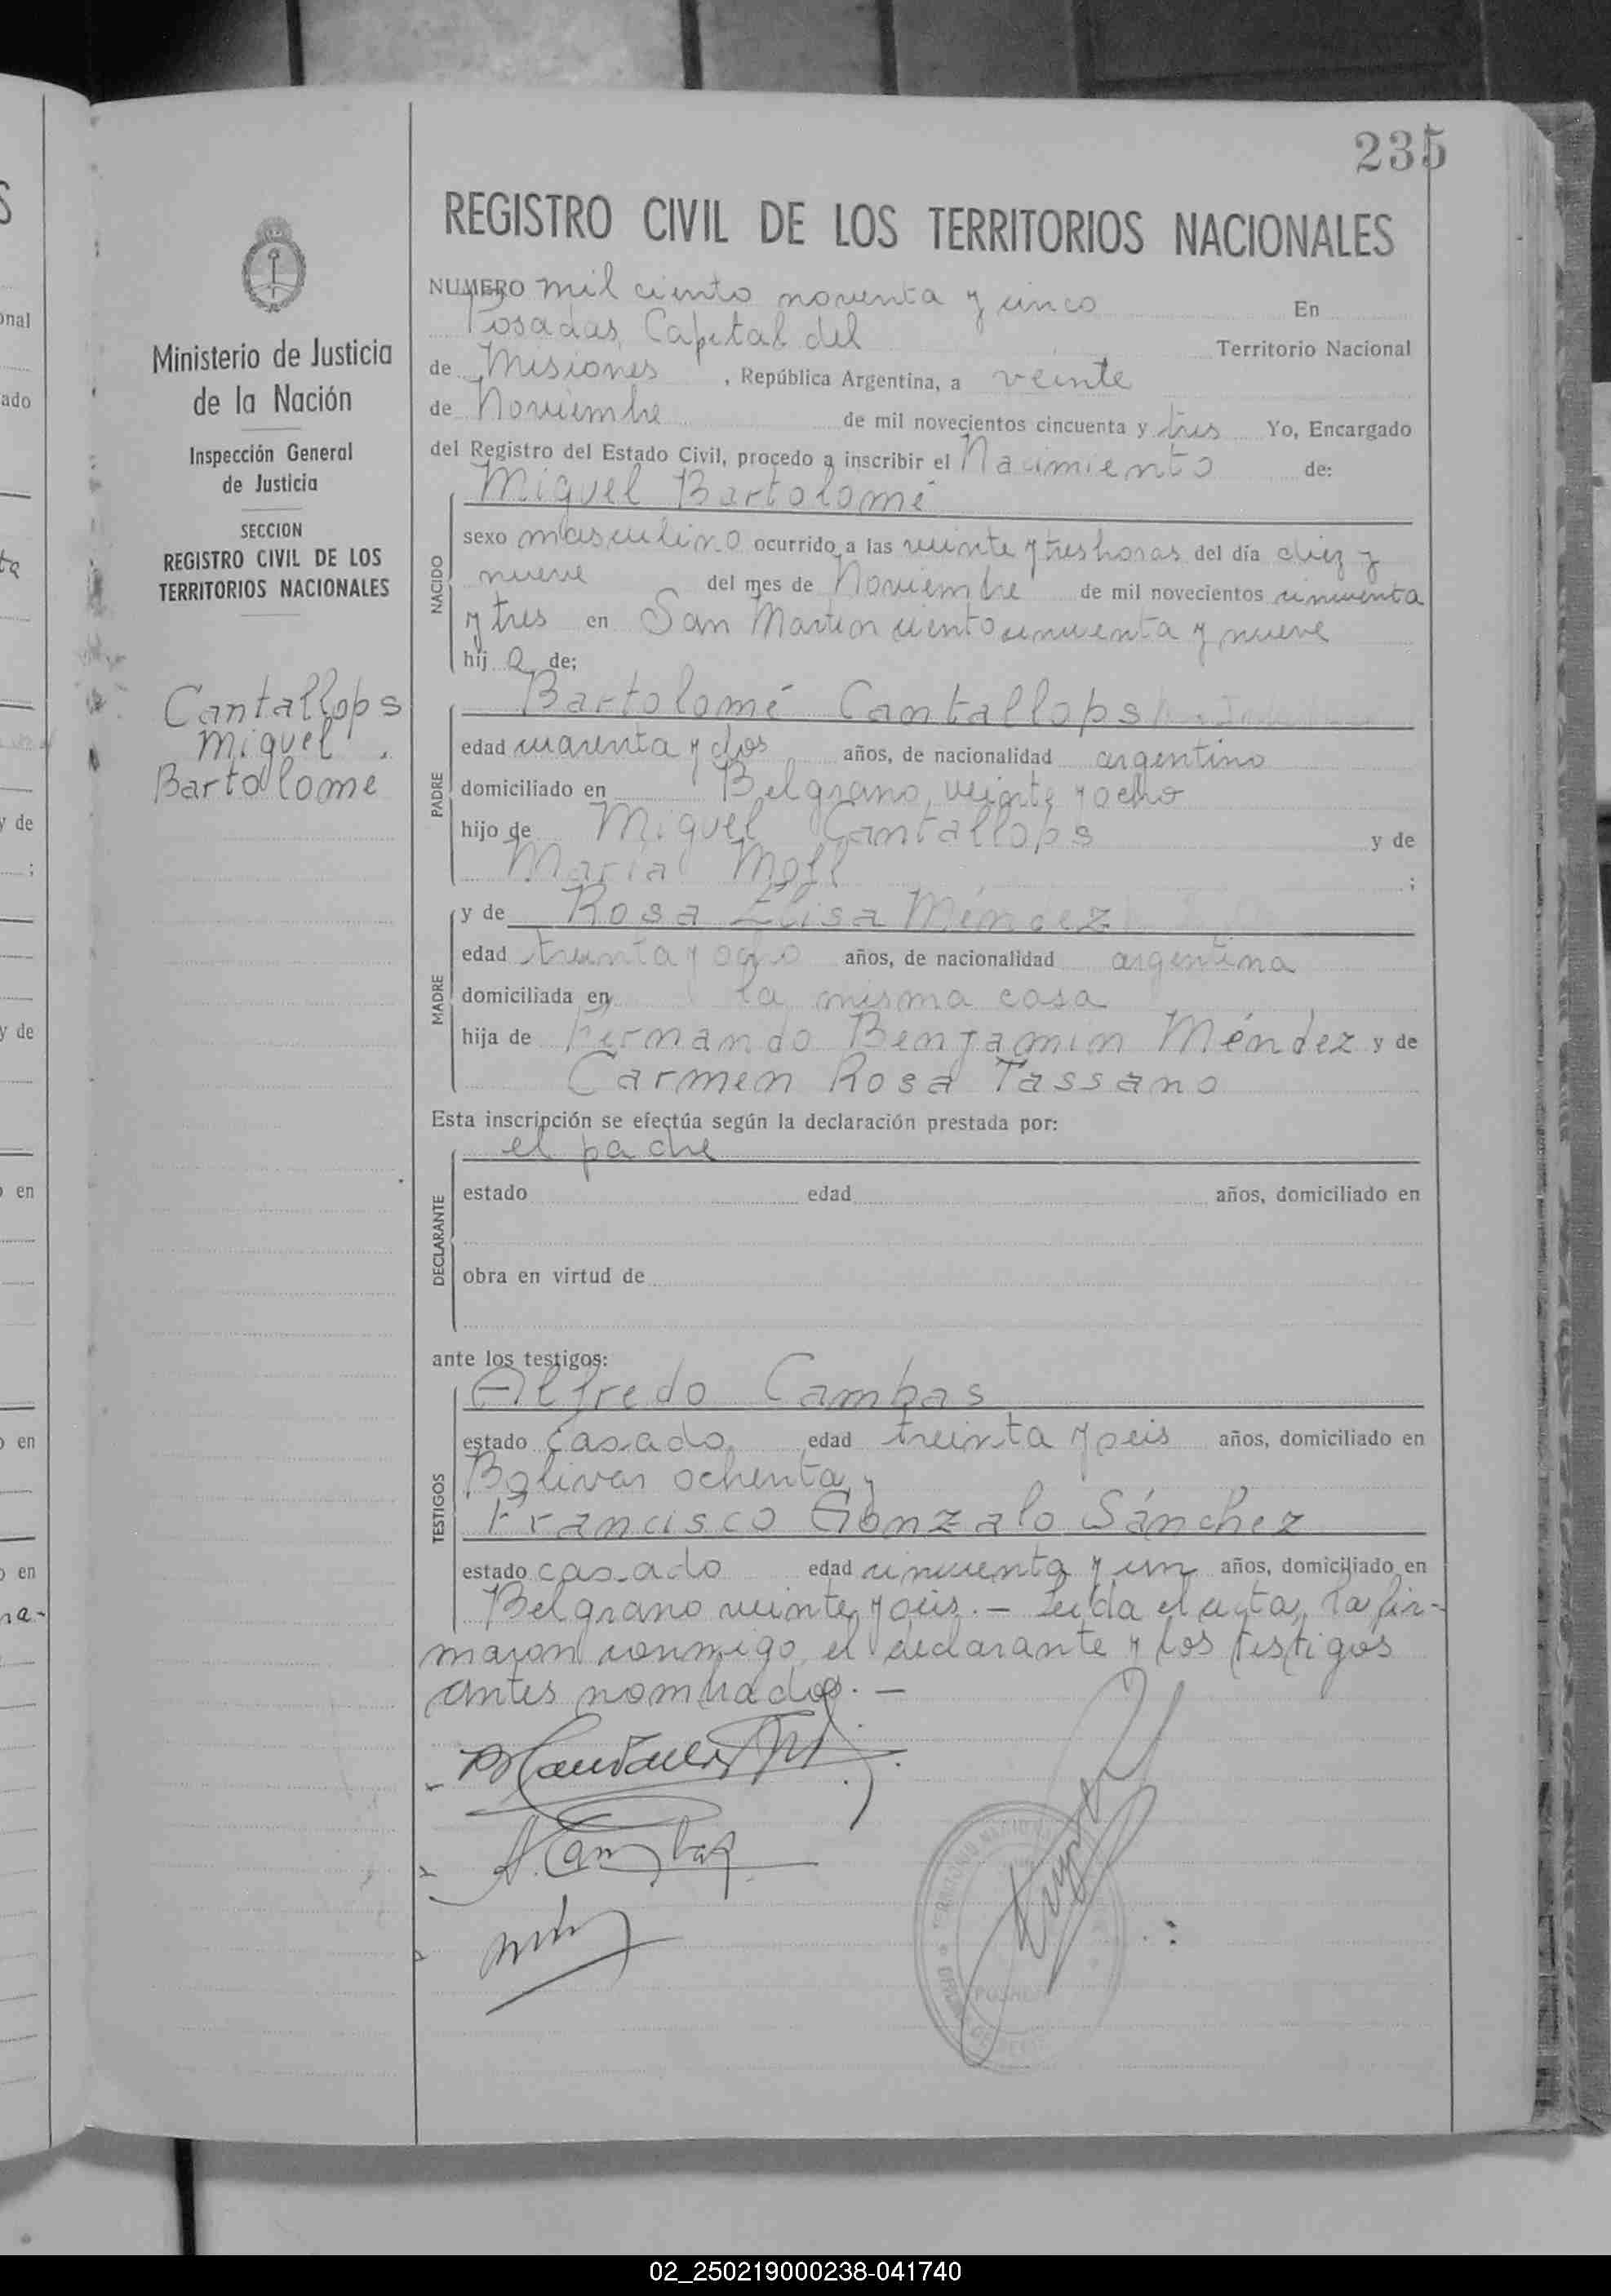 235
REGISTRO CIVIL DE LOS TERRITORIOS NACIONALES
Ministerio de Justicia
de la Nación
Inspección General
de Justicia
SECCION
REGISTRO CIVIL DE LOS
TERRITORIOS NACIONALES
Cantallops
Miguel
Bartolomé
NUMERO mil ciento noventa y cinco En
Posadas, Capital del Territorio Nacional
de Misiones, República Argentina, a veinte
de Noviembre de mil novecientos cincuenta y tres Yo, Encargado
del Registro del Estado Civil, procedo a inscribir el Nacimiento de:
Miguel Bartolomé
NACIDO
sexo masculino ocurrido a las veinte y tres horas del día diez y
nueve del mes de Noviembre de mil novecientos cincuenta
y tres en San Martin ciento cincuenta y nueve
hij o de;
Bartolomé Cantallops
PADRE
edad cuarenta y dos años, de nacionalidad argentino
domiciliado en Belgrano, veinte y ocho
hijo de Miguel Cantallops y de
Maria Moll ;
y de Rosa Elisa Méndez
MADRE
edad treinta y ocho años, de nacionalidad argentina
domiciliada en la misma casa
hija de Fernando Benjamin Méndez y de
Carmen Rosa Tassano
Esta inscripción se efectúa según la declaración prestada por:
el padre
DECLARANTE
estado edad años, domiciliado en
obra en virtud de
ante los testigos:
Alfredo Cambas
TESTIGOS
estado casado edad treinta y seis años, domiciliado en
Bolivar ochenta y
Francisco Gonzalo Sánchez
estado casado edad cincuenta y un años, domiciliado en
Belgrano veinte y seis.- Leida el acta, la fir-
maron conmigo, el declarante y los testigos
antes nombrados.-
A. Cambas
POSADAS
02_250219000238-041740